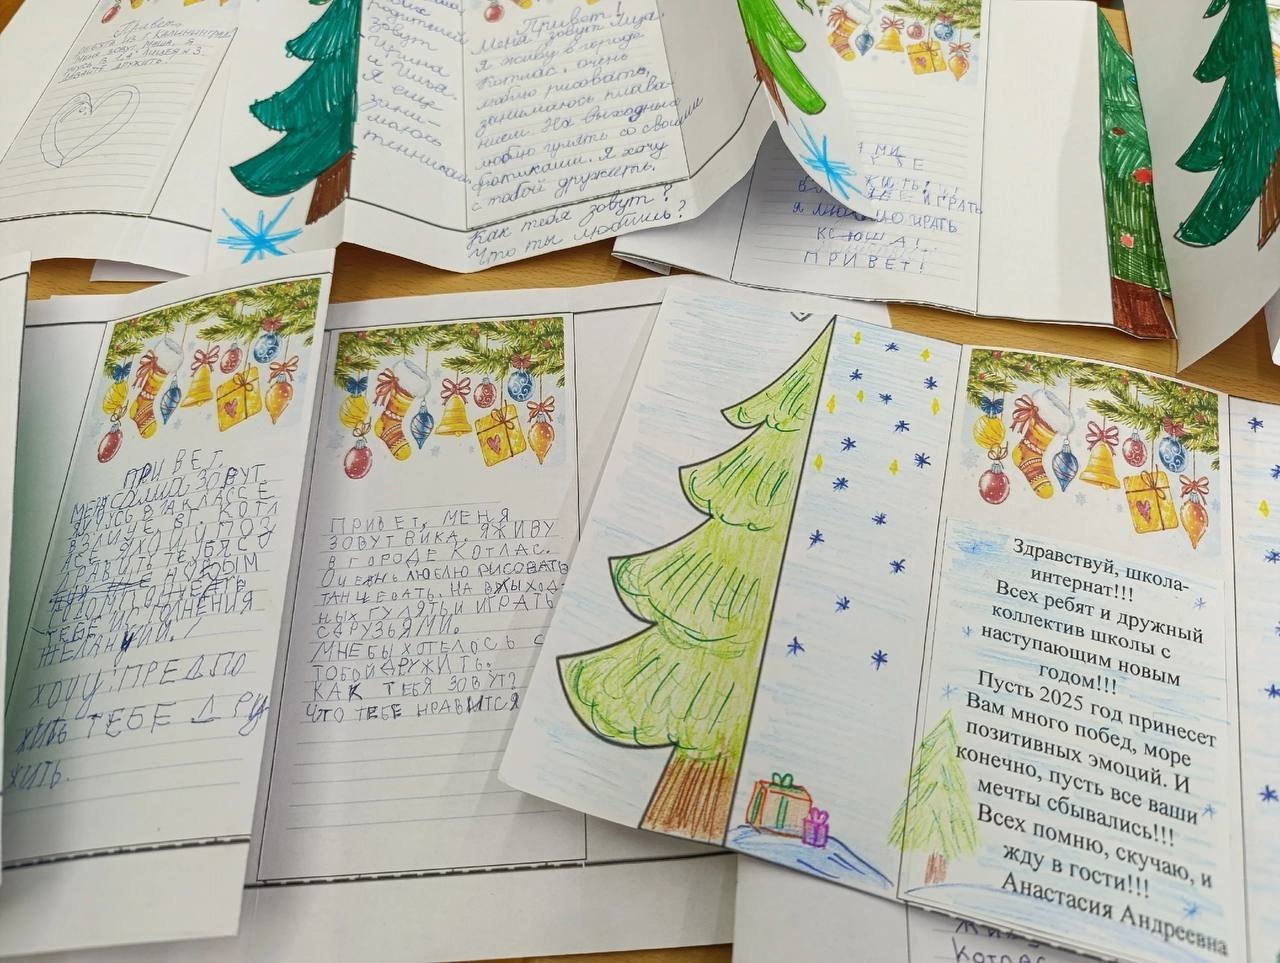 Привет,
РЕБЯТА ИЗ Г. КАЛИНИНГРАД
МЕНЯ ЗОВУТ МАША, Я
УЧУСЬ В 1"А" ЛИЦЕЯ №3
ДАВАЙТЕ ДРУЖИТЬ!
родителей
зовут
Ирина
и Илья.
Я еще
зани-
маюсь
теннисом.
Привет!
Меня зовут Лиза.
Я живу в городе
Котлас. очень
люблю рисовать,
занимаюсь плава-
нием. На выходных
люблю гулять со своими
Я хочу
с тобой дружить.
Как тебя зовут?
Что ты любишь?
ИГРАТЬ
Я ИГРАТЬ
КСЮША!
ПРИВЕТ!
ПРИВЕТ,
МЕНЯ ЗОВУТ
Я УЧУСЬ В 1А КЛАССЕ
В ЛИЦЕЕ В Г. КОТЛ
АСЕ Я ХОЧУ ПОЗ
ДРАВИТЬ ТЕБЯ СО
НОВЫМ
ГОДОМ
ИСПОЛНЕНИЯ
ТЕБЕ
ЖЕЛАНИЙ!
ХОЧУ ПРЕДЛО
ЖИТЬ ТЕБЕ ДРУ
ЖИТЬ.
ПРИВЕТ, МЕНЯ
ЗОВУТ ВИКА. Я ЖИВУ
В ГОРОДЕ КОТЛАС.
ОЧЕНЬ ЛЮБЛЮ РИСОВАТЬ
ТАНЦЕВАТЬ. НА ВЫХОД-
НЫХ ГУЛЯТЬ И ИГРАТЬ
С ДРУЗЬЯМИ.
МНЕ БЫ ХОТЕЛОСЬ С
ТОБОЙ ДРУЖИТЬ.
КАК ТЕБЯ ЗОВУТ?
ЧТО ТЕБЕ НРАВИТСЯ
Здравствуй, школа-
интернат!!!
Всех ребят и дружный
коллектив школы с
наступающим новым
годом!!!
Пусть 2025 год принесет
Вам много побед, море
позитивных эмоций. И
конечно, пусть все ваши
мечты сбывались!!!
Всех помню, скучаю, и
жду в гости!!!
Анастасия Андреевна
Котлас